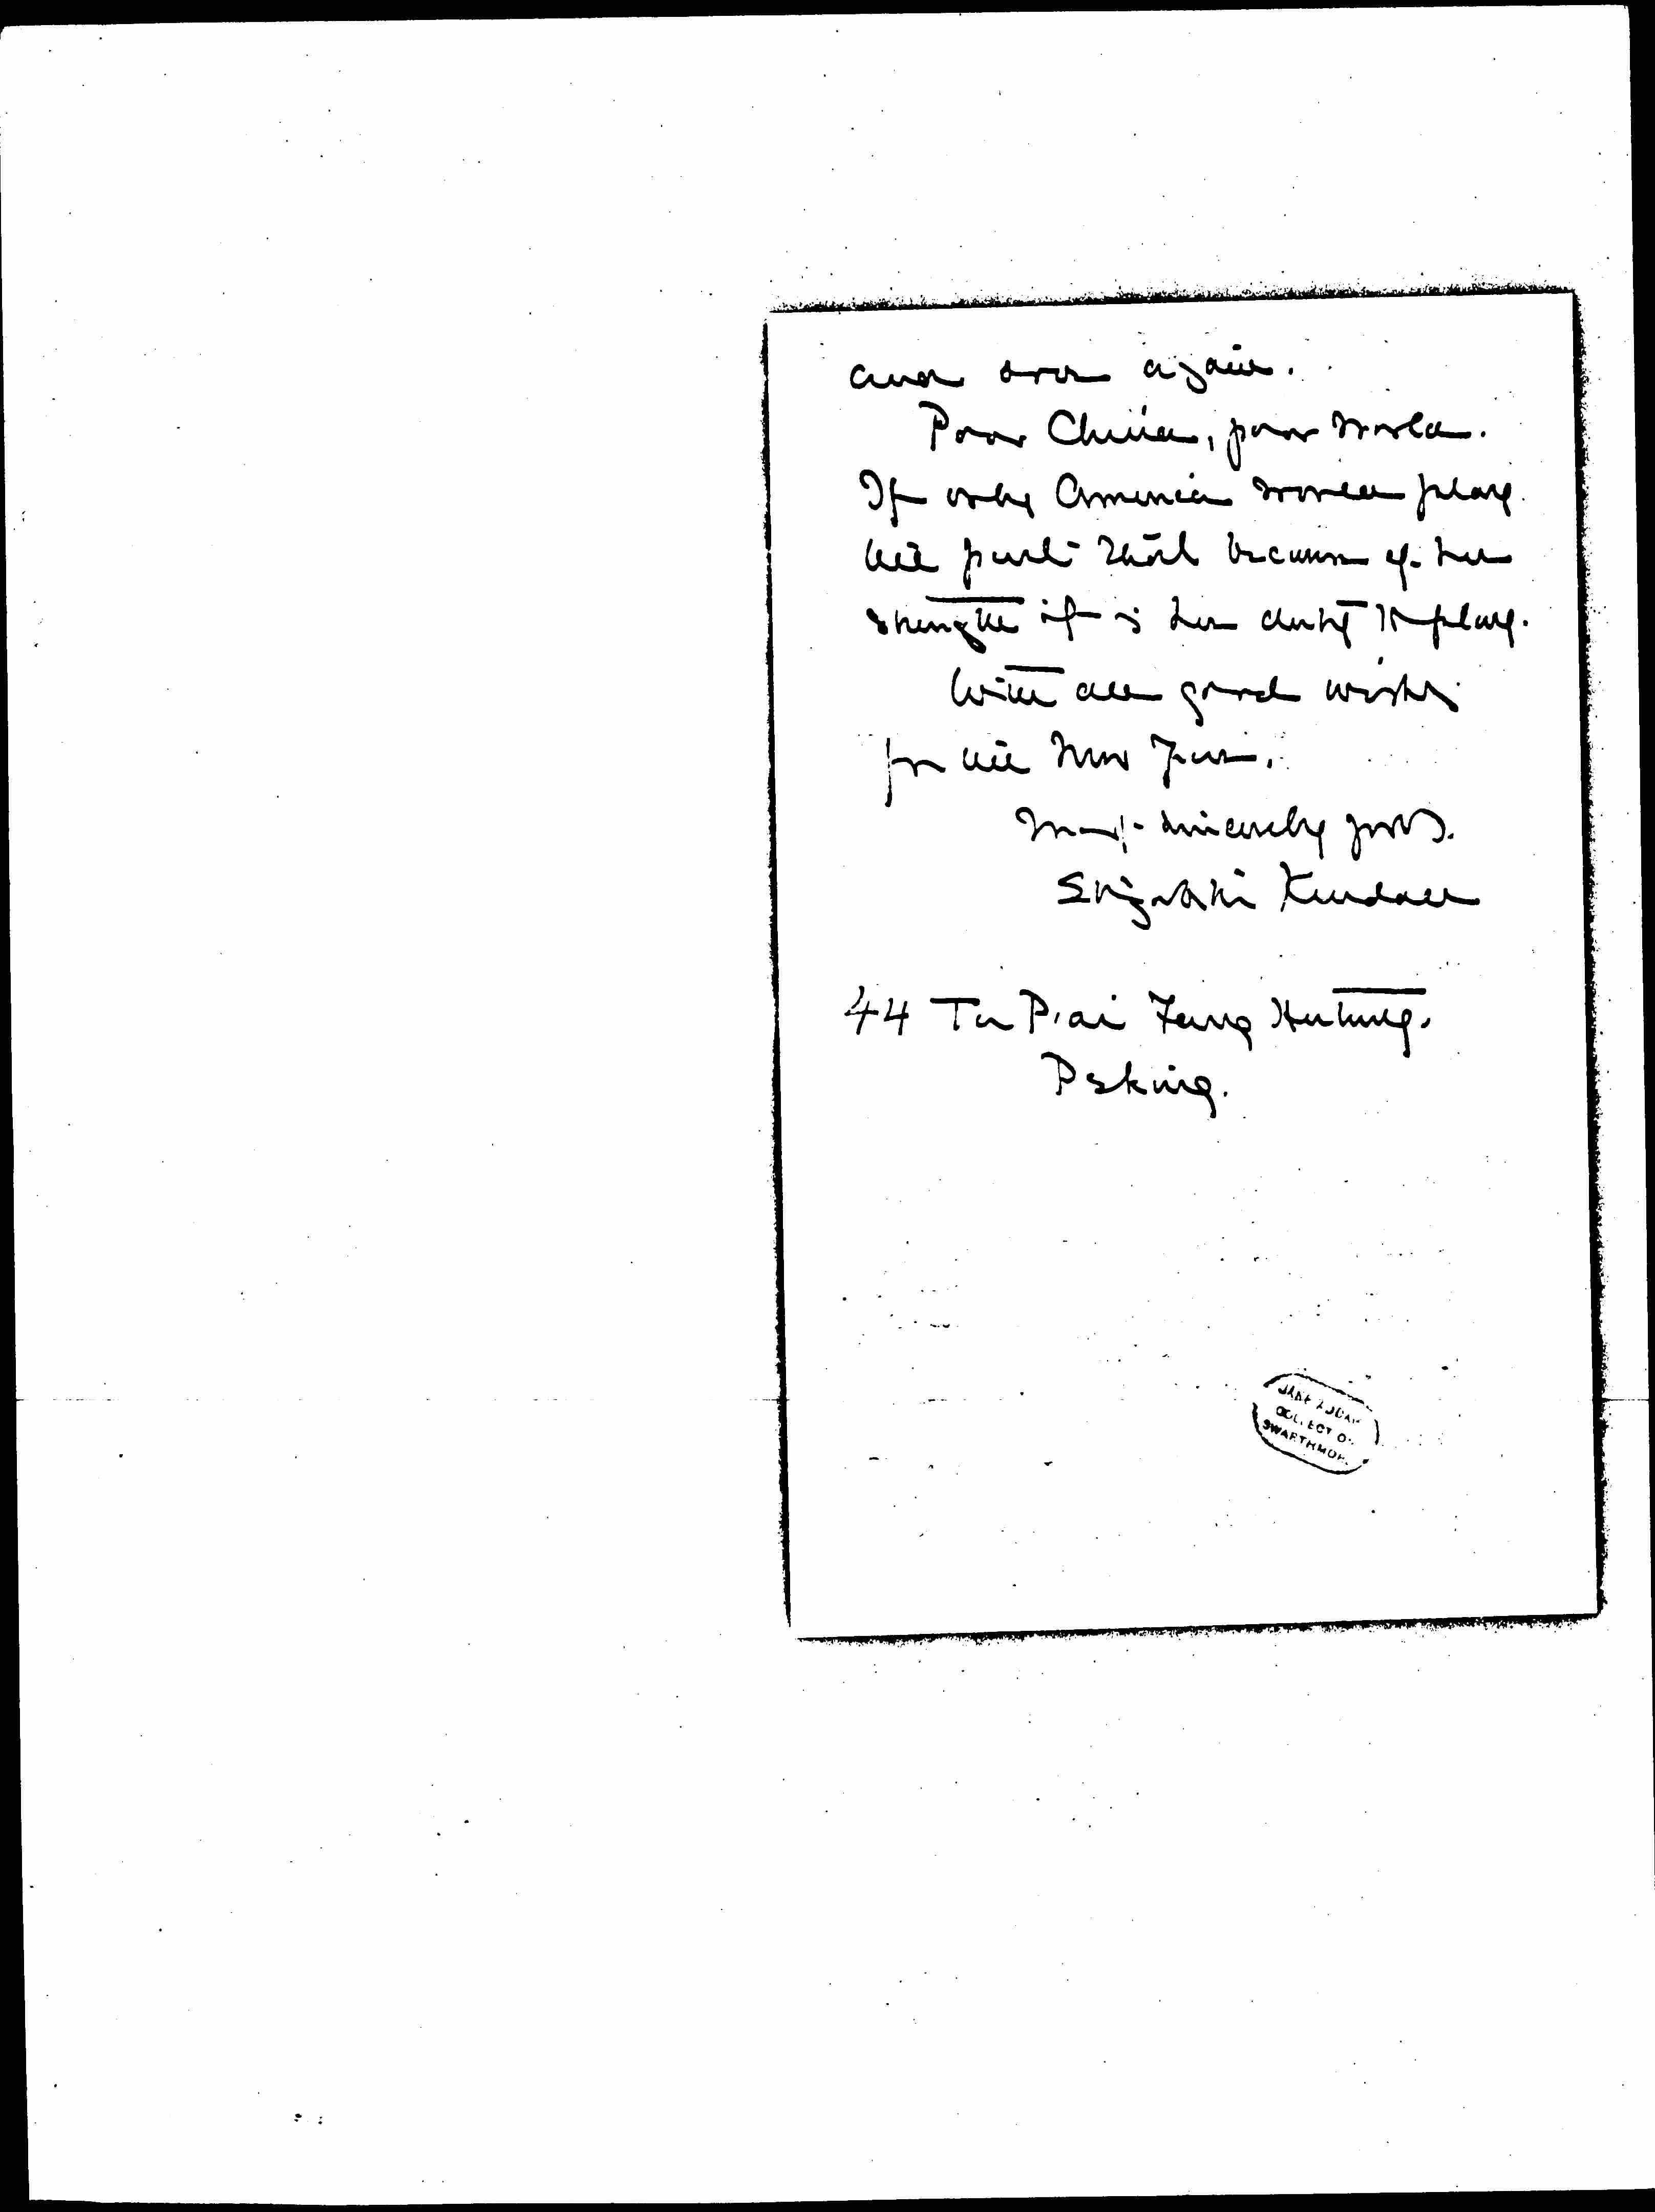 and over again.
Poor China, poor world.
If only America would play
the part that because of her
strength it is her duty to play.
With all good wishes
for the New Year,
Most sincerely yours.
Elizabeth Kendall
44 Ta P'ai Fang Hutung.
Peking.
JANE ADDAM
COLLECTION
SWARTHMORE